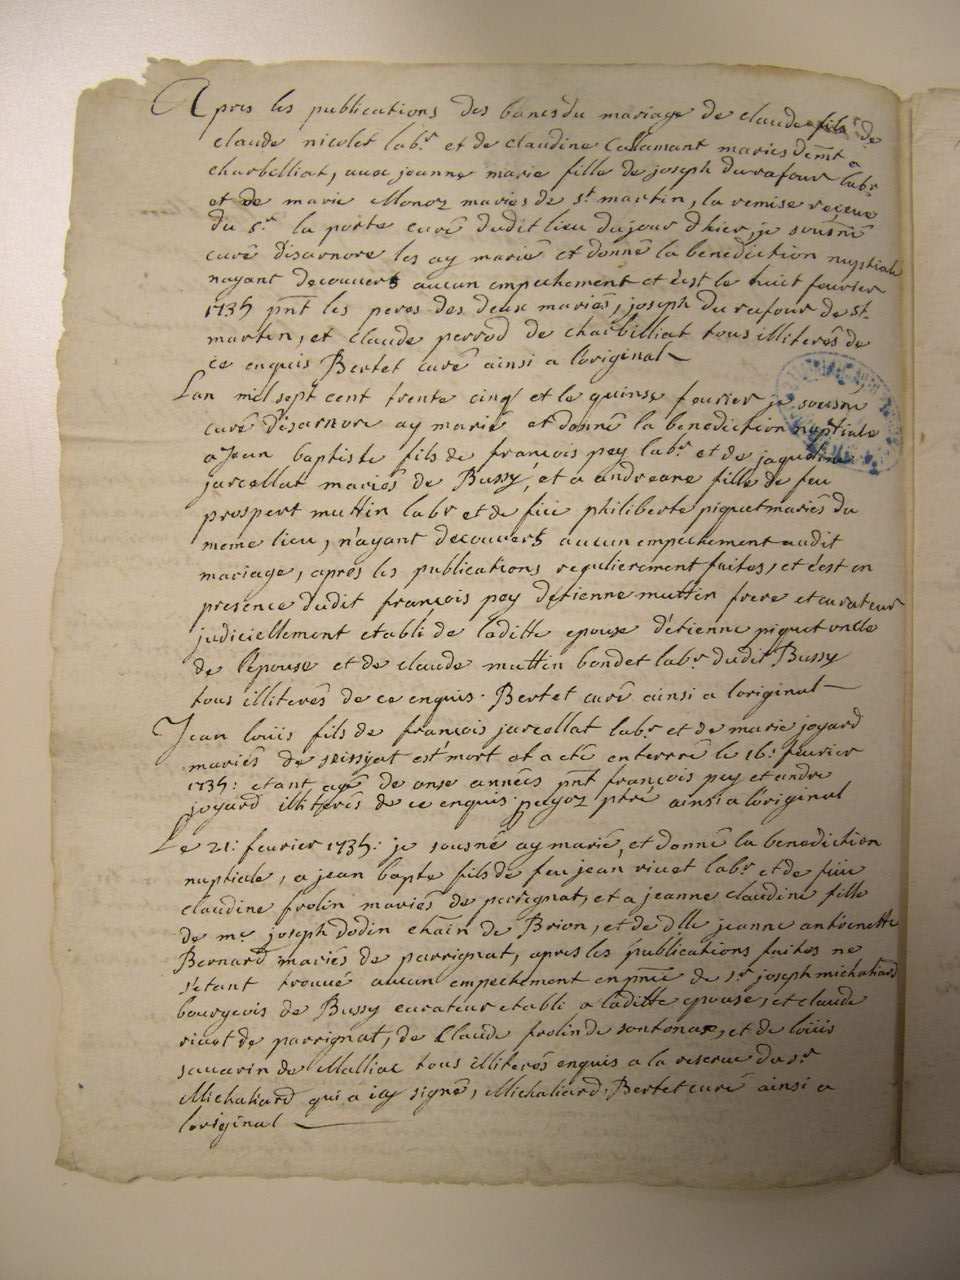 Apres les publications des bancs du mariage de claude fils de
claude nicolet labr et de claudine Callamant maries demt a
charbelliat, avec jeanne marie fille de joseph du rafour labr
et de marie Monoz mariés de st martin, la remise reçeue
du sr la porte curé dudit lieu du jour dhier, je sousné
curé disarnore les ay marié et donné la benediction nuptiale
nayant decouvert aucun empechement et c'est le huit fevrier
1735 pnt les peres des deux mariés, joseph du rafour de st
martin, et claude perrod de charbilliat tous illiterés de
ce enquis Bertet curé ainsi a loriginal
Lan mil sept cent trente cinq et le quinse fevrier je sousné
curé disarnore ay marié et donné la benediction nuptiale
a Jean baptiste fils de françois pey labr et de jaqueline
jarcellat mariés de Bussy, et a andreane fille de feu
prospert muttin labr et de fûe philiberte piquet mariés du
meme lieu, n'ayant decouvert aucun empechement audit
mariage, après les publications regulierement faites, et c'est en
presence dudit françois pey d'etienne muttin frere et curateur
judiciellement etabli de laditte epouse d'etienne piquet oncle
de l'epouse et de claude muttin bondet labr dudit Bussy
tous illiterés de ce enquis. Bertet curé ainsi a loriginal
Jean loüis fils de françois jarcollat labr et de marie joyard
mariés de seissyat est mort et a eté enterré le 16: fevrier
1735: etant agé de onse années pnt françois pey et andre
joyard illiterés de ce enquis payoz ptre ainsi a l'original
Le 21: fevrier 1735: je sousné ay marié, et donné la benediction
nuptiale, a jean bapte fils de feu jean rivet labr et de fûe
claudine frolin mariés de perrignat, et a jeanne claudine fille
de me joseph dodin chaïn de Brion, et de dlle jeanne anthoinette
Bernard mariés de parrignat, apres les publications faites ne
s'etant trouvé aucun empechement en pnce de sr joseph michaliard
bourgeois de Bussy curateur etabli a laditte epouse, et claude
rivet de parrignat, de Claude frolin de sontonax, et de loüis
savarin de Malliac tous illiterés enquis a la reserve du sr
Michaliard qui a icy signé, Michaliard, Bertet curé ainsi a
loriginal